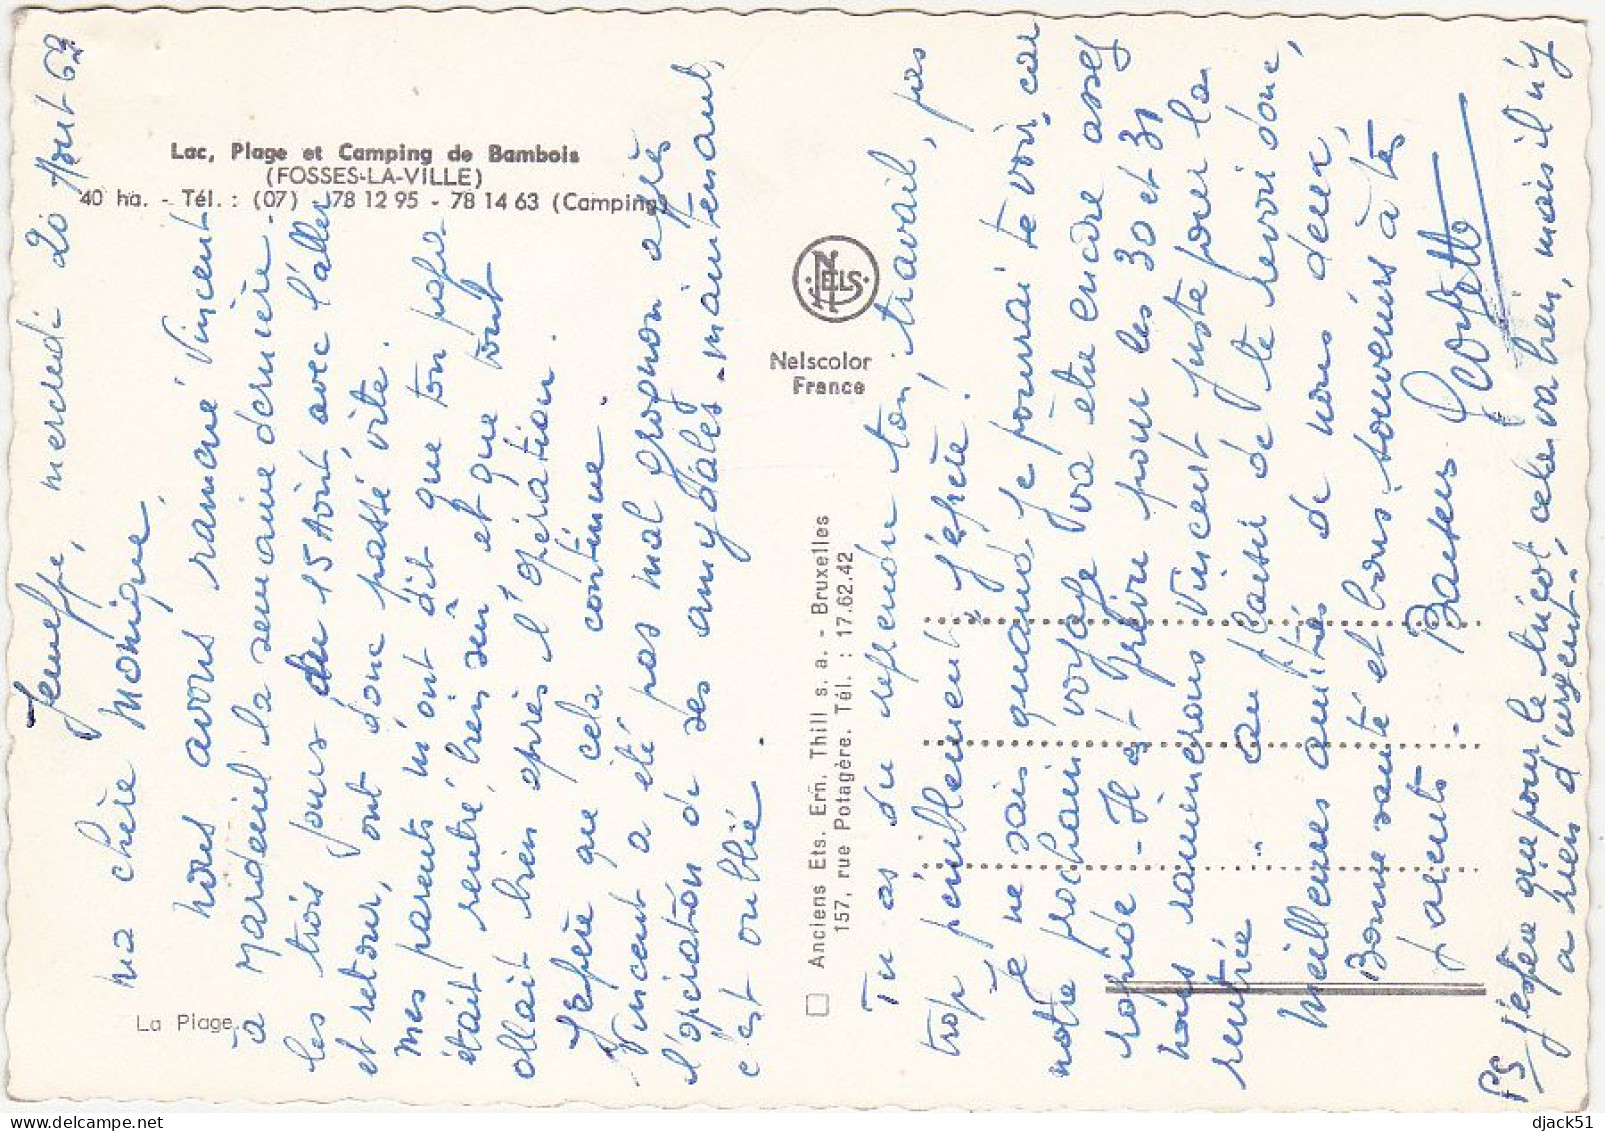 Lac, Plage et Camping de Bambois
(FOSSES-LA-VILLE)
40 ha. - Tél. : (07) 178 12 95 - 78 14 63 (Camping)
La Plage.
NELS
Nelscolor
France
Anciens Ets. Ern. Thill s. a. - Bruxelles
157, rue Potagère. Tél. : 17.62.42
Jeneffe, mercredi 20 Aout 69
Ma chère Monique,
Nous avons ramené Vincent
à Mardeuil la semaine dernière -
les trois jours du 15 Août, avec l'aller
et retour, ont donc passé vite.
Mes parents m'ont dit que ton papa
était rentré, bien sûr et que tout
allait bien après l'opération.
J'espère que cela continue.
Vincent a été pas mal grognon après
l'opération de ses amygdales - maintenant,
c'est oublié.
Tu as du reprendre ton travail, pas
trop péniblement, j'espère !
Je ne sais quand je pourrai te voir, car
notre prochain voyage va être encore assez
rapide - Il est prévu pour les 30 et 31
nous ramènerons Vincent juste pour la
rentrée. au plaisir de te revoir donc,
Meilleures amitiés de nous deux,
Bonne santé et bons souvenirs à tes
parents. Baisers
PS J'espère que pour le tricot, cela va bien, mais il n'y
a rien d'urgent.
djack51